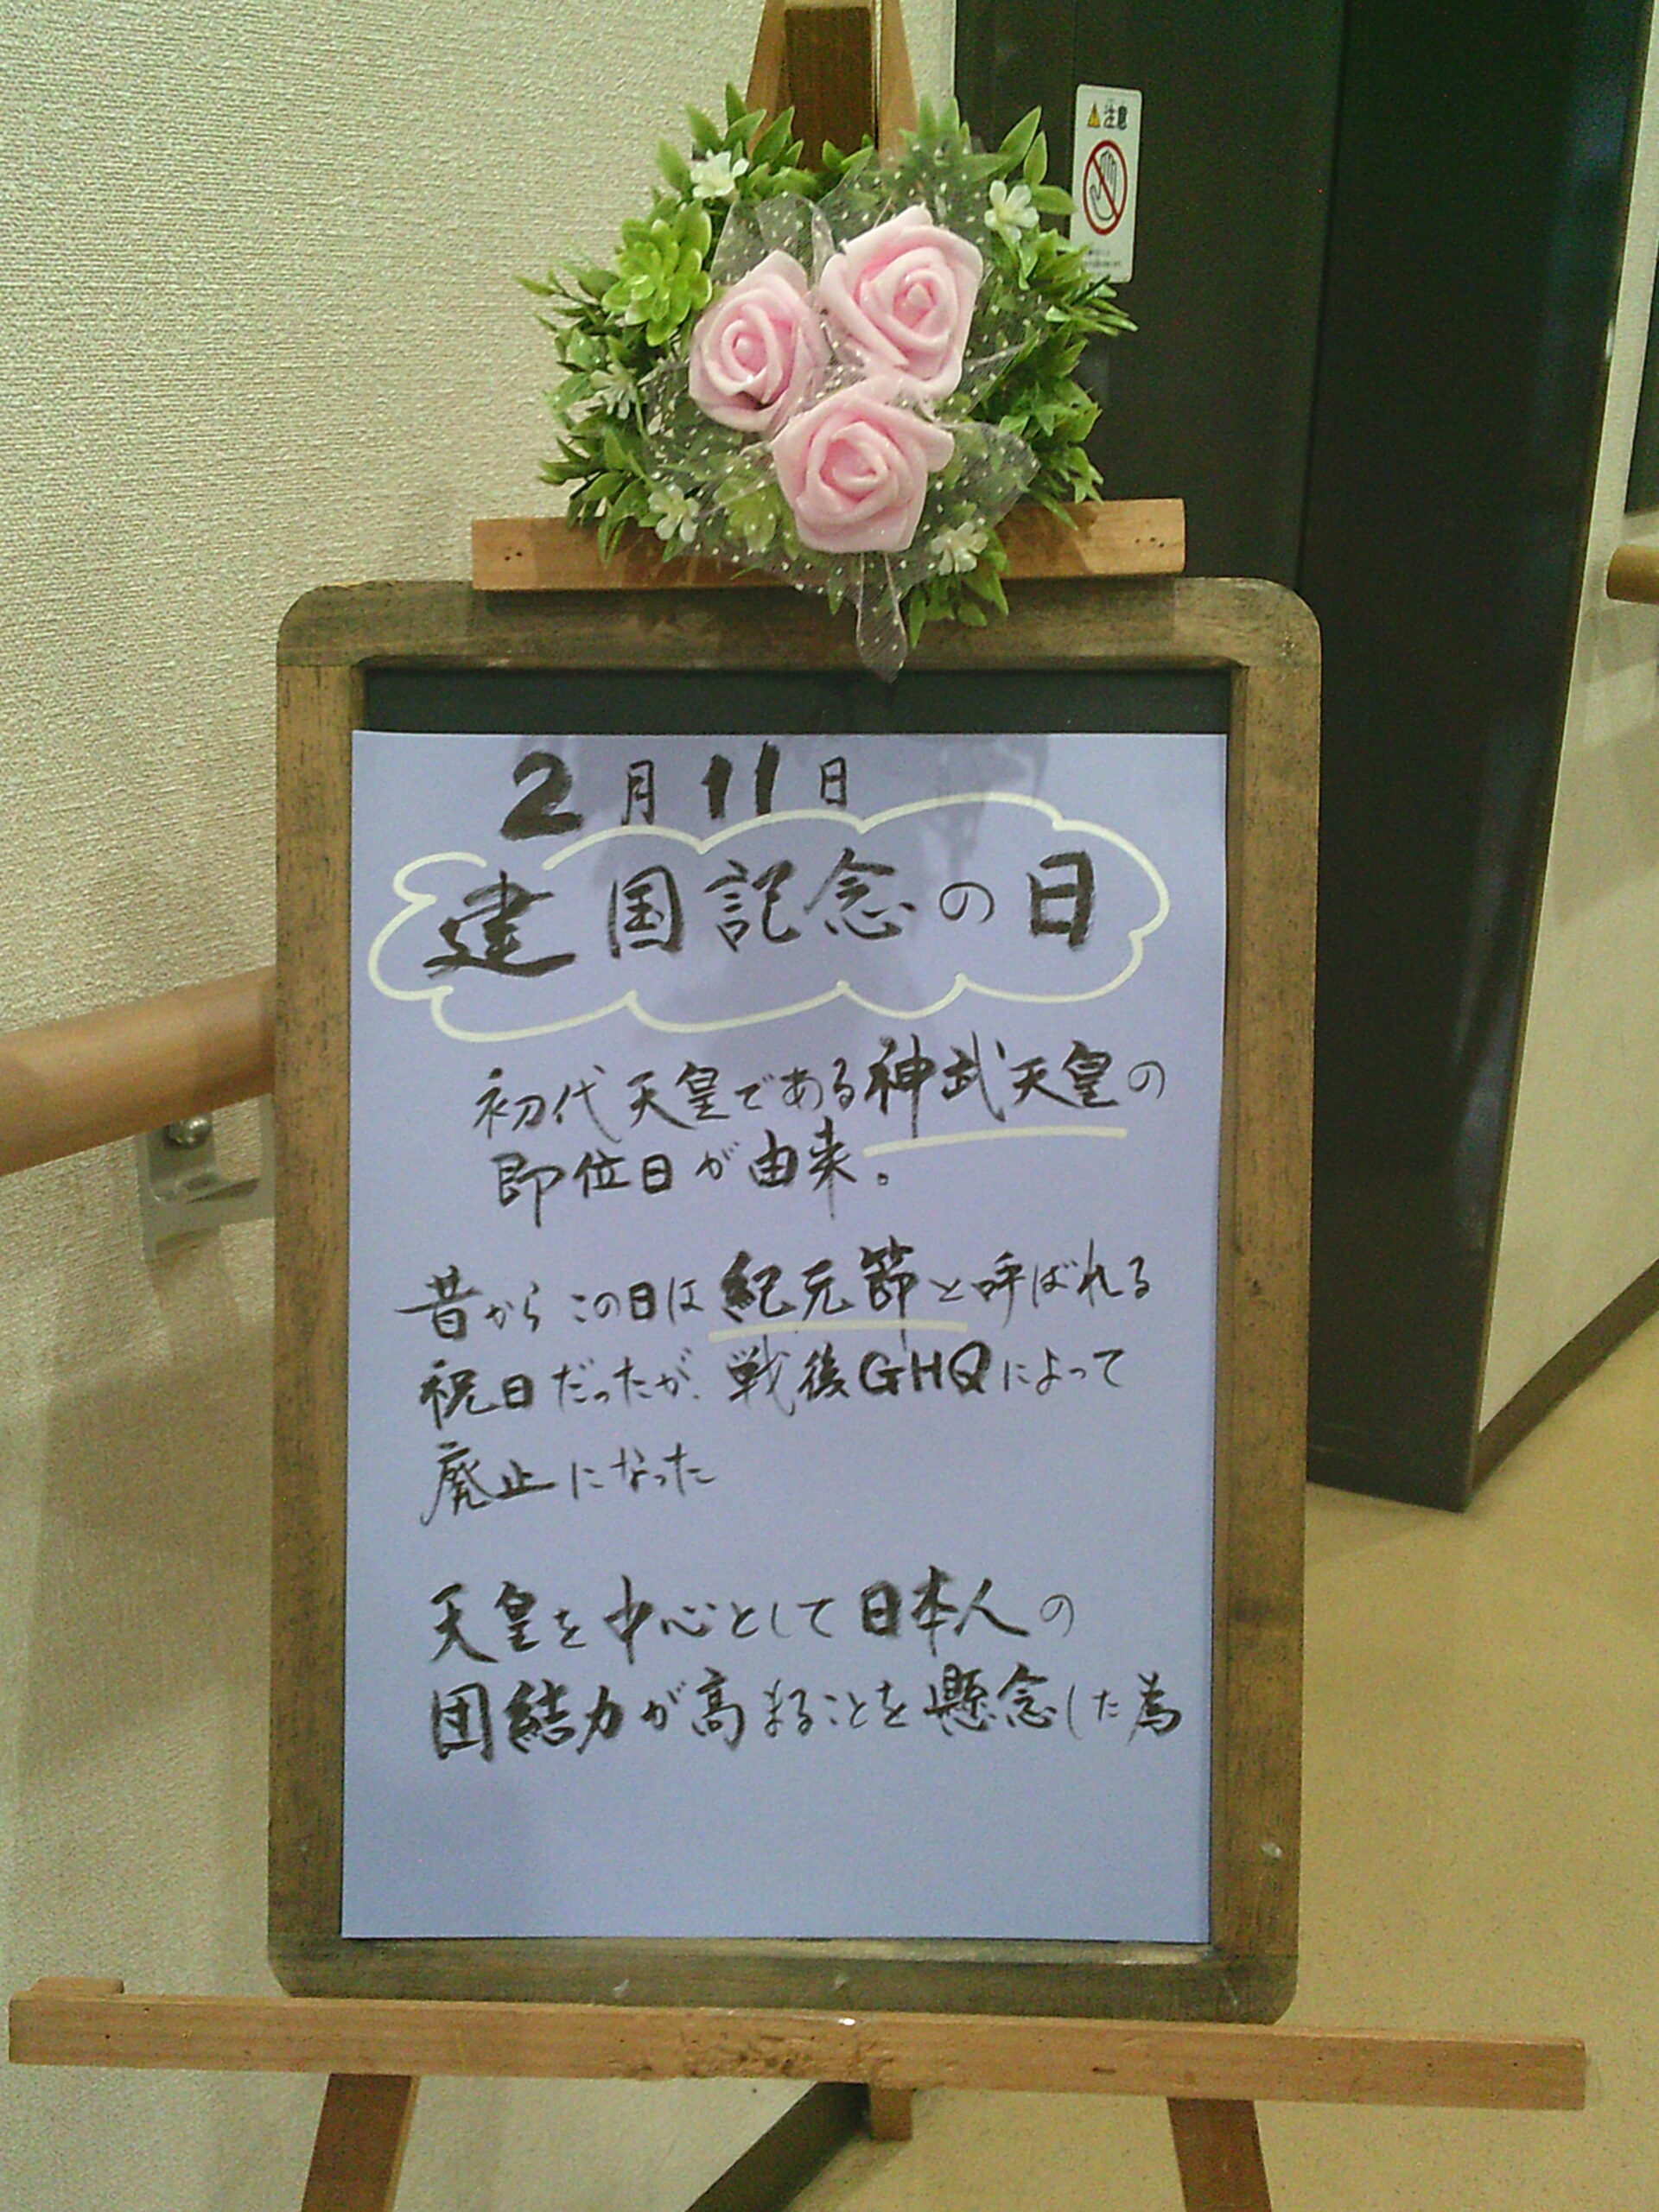 注意
2月11日
建国記念の日
初代天皇である神武天皇の
即位日が由来。
昔からこの日は紀元節と呼ばれる
祝日だったが、戦後GHQによって
廃止になった
天皇を中心として日本人の
団結力が高まることを懸念した為